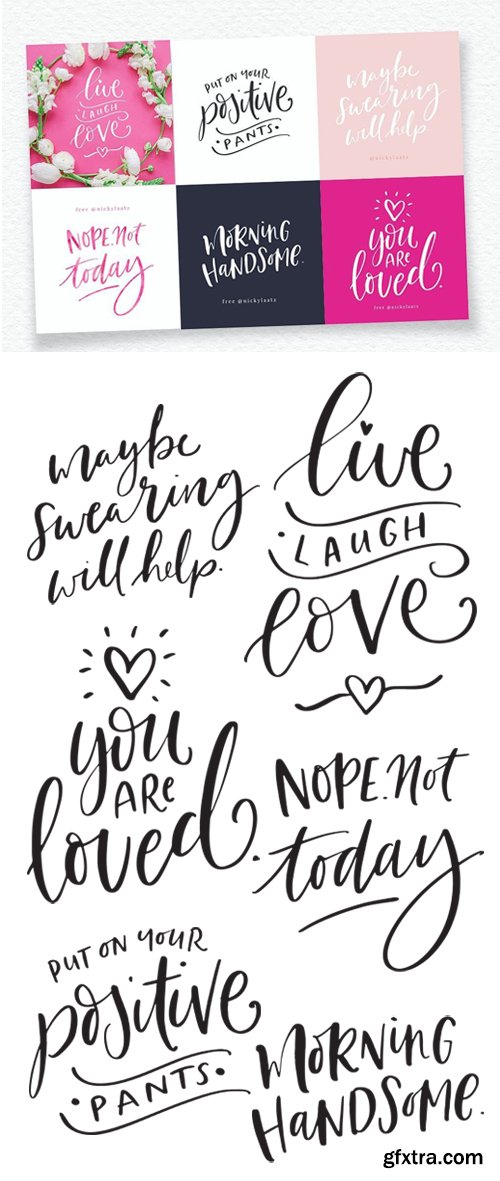 live
LAUGH
love
PUT ON YOUR
positive
PANTS
maybe
swearing
will help
@nickylaatz
free @nickylaatz
NOPE. Not
today
MORNING
HANDSOME.
free @nickylaatz
you
ARE
loved.
free @nickylaatz
maybe
swearing
will help.
live
LAUGH
love
you
ARe
loved.
NOPE. Not
today
PUT ON YOUR
positive
PANTS
MORNING
HANDSOMe.
gfxtra.com